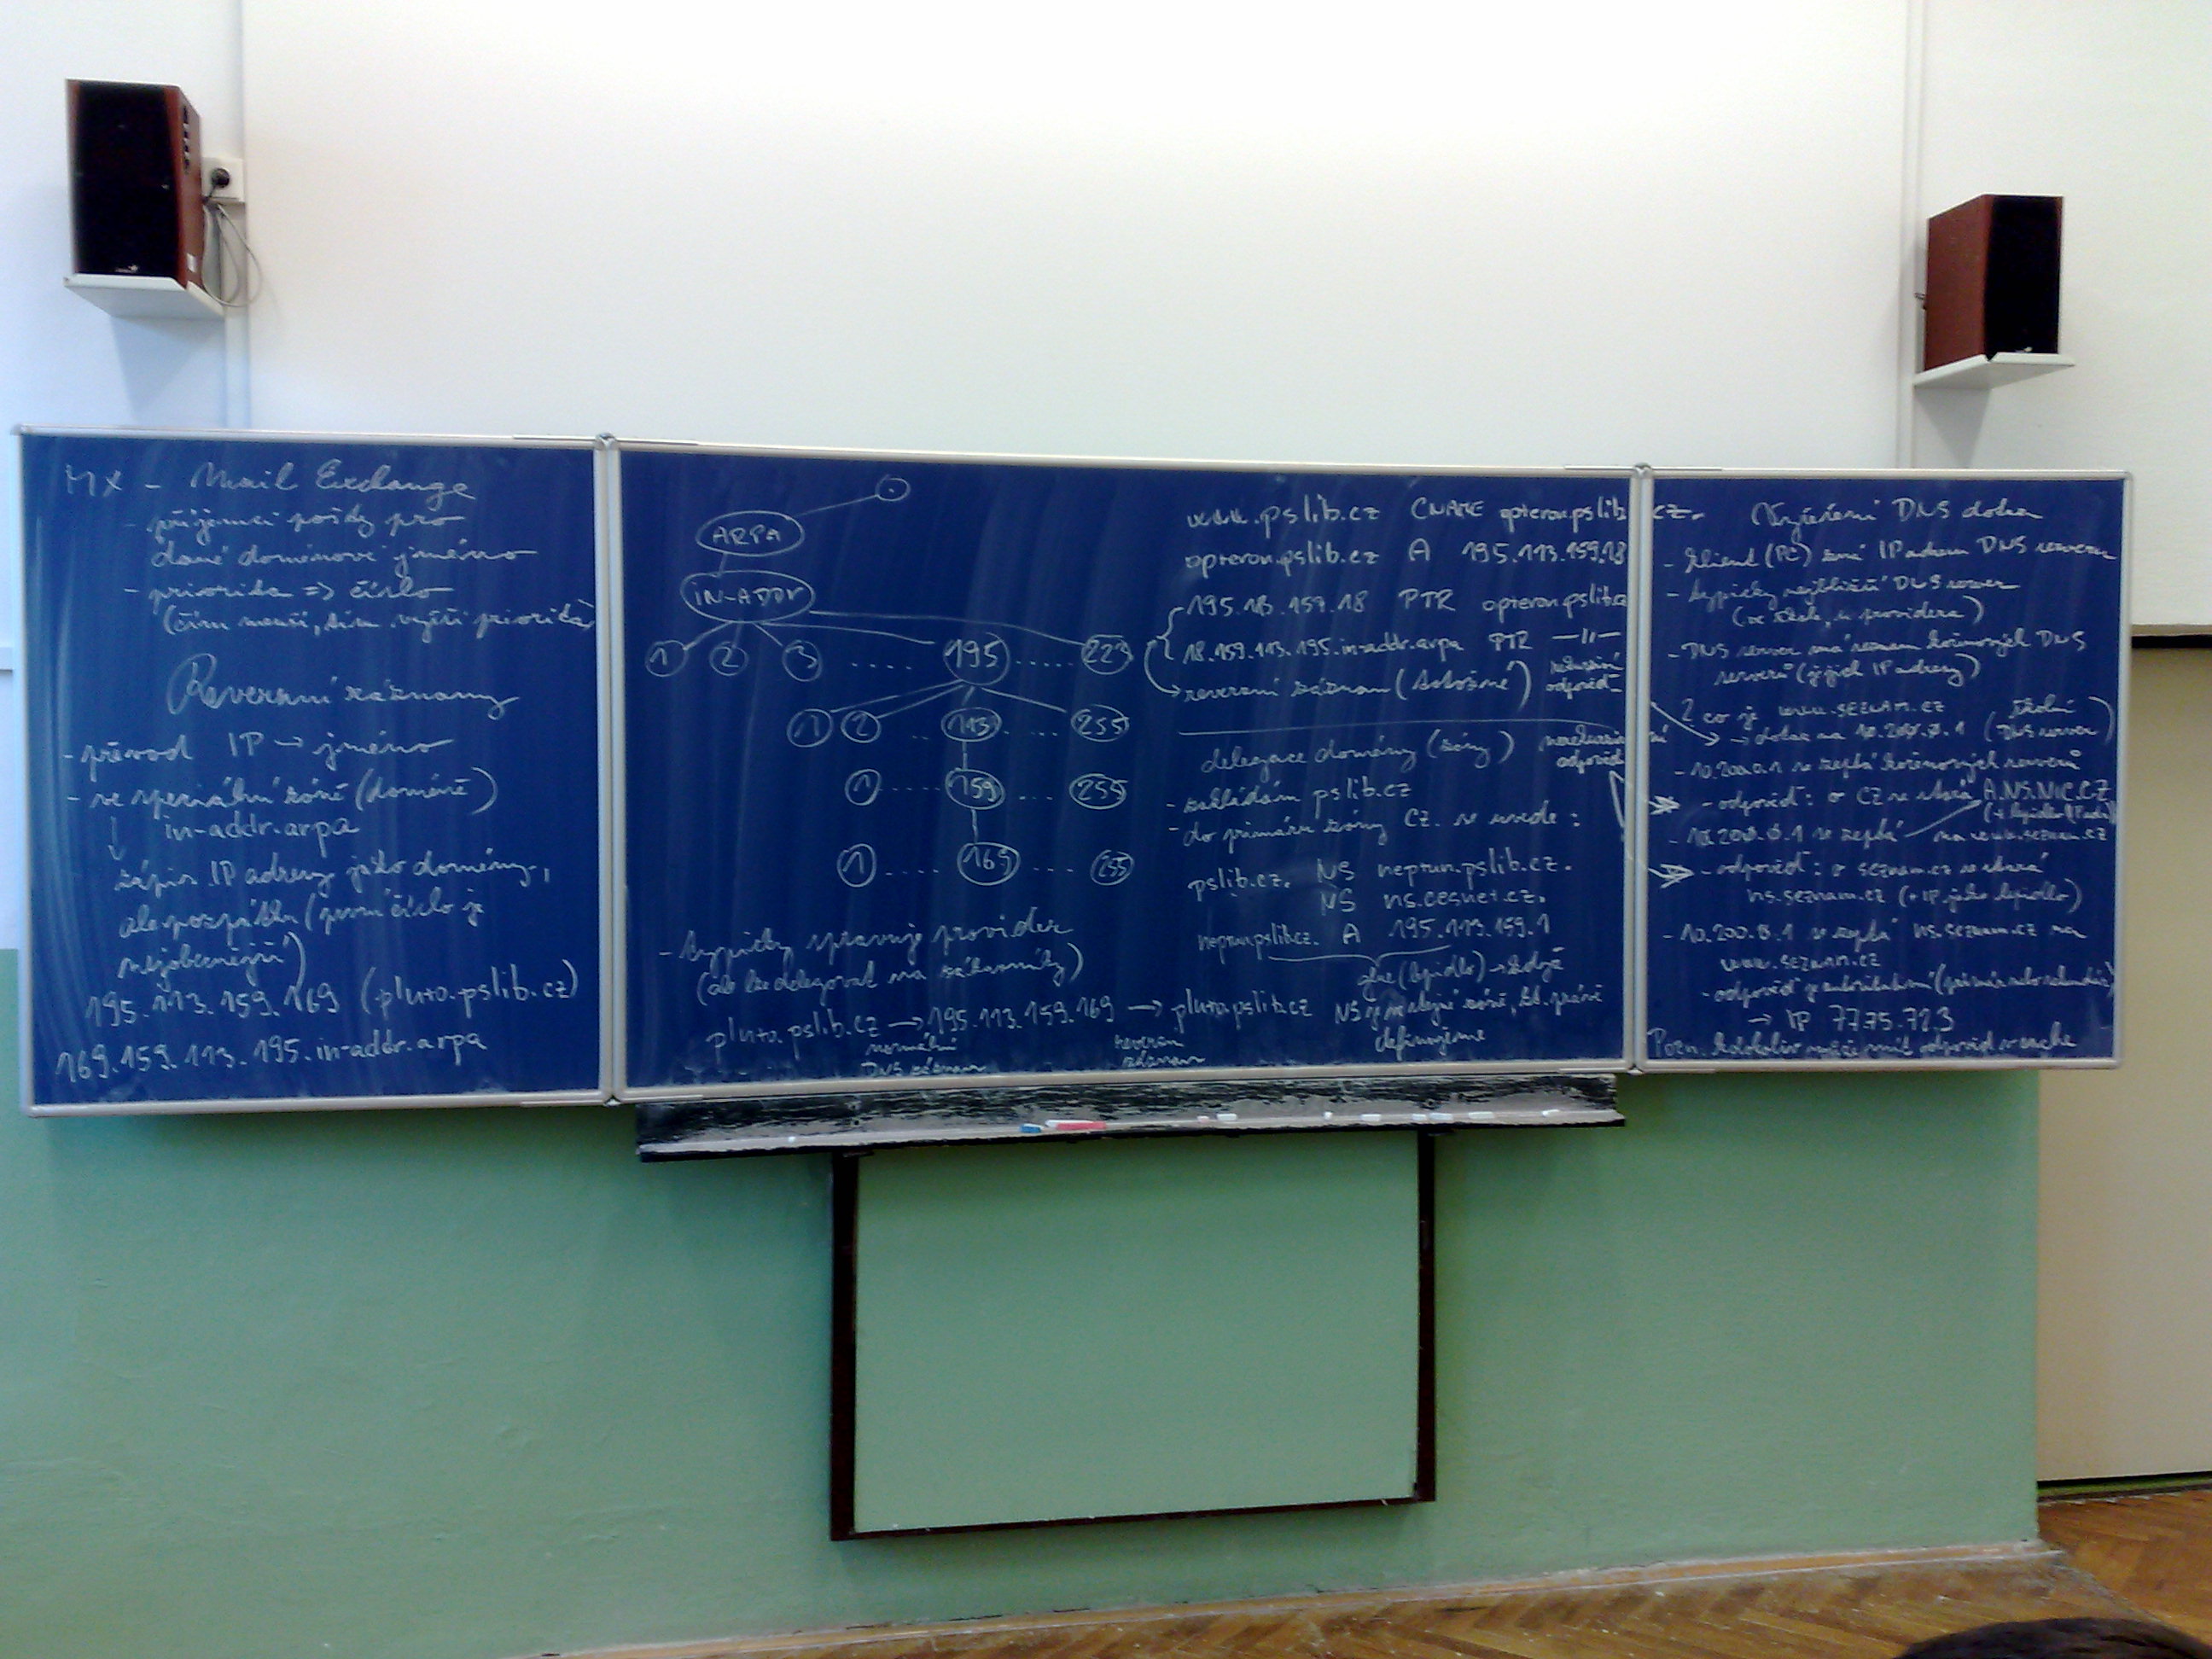 MX - Mail Exchange
- příjemci pošty pro
dané doménové jméno
- priorita => číslo
(čím menší, tím vyšší priorita)
Reverzní záznamy
- převod IP → jméno
- ve speciální zóně (doméně)
in-addr.arpa
↓
zápis IP adresy jako domény,
ale pozpátku (první číslo je
nejobecnější)
195.113.159.169 (pluto.pslib.cz)
169.159.113.195.in-addr.arpa
.
ARPA
IN-ADDR
1 2 3 ..... 195 ..... 223
1 2 .. 113 ... 255
1 ..... 159 ... 255
1 ..... 169 .... 255
- typicky spravuje provider
(ale lze delegovat na zákazníky)
pluto.pslib.cz → 195.113.159.169 → pluto.pslib.cz
normální
DNS záznam
reverzní
záznam
www.pslib.cz CNAME opteron.pslib.cz.
opteron.pslib.cz A 195.113.159.18
195.113.159.18 PTR opteron.pslib.cz
18.159.113.195.in-addr.arpa PTR —"—
→ reverzní záznam
rekurzivní
odpověď
delegace domény (zóny)
nerekurzivní
odpověď
- zakládám pslib.cz
- do primáru zóny cz. se uvede:
pslib.cz. NS neptun.pslib.cz.
NS ns.cesnet.cz.
neptun.pslib.cz. A 195.113.159.1
glue (lepidlo)
NS je ve stejné zóně, kt. právě
definujeme
Vyřešení DNS dotazu
- klient (PC) zná IP adresu DNS serveru
- typicky nejbližší DNS server
(ve škole, u providera)
- DNS server má seznam kořenových DNS
serverů (jejich IP adresy)
? co je www.seznam.cz
→ dotaz na 10.200.0.1 (školní
DNS server)
- 10.200.0.1 se zeptá kořenových serverů
- odpověď: o CZ se stará A.NS.NIC.CZ
- 10.200.0.1 se zeptá na www.seznam.cz
- odpověď: o seznam.cz se stará
ns.seznam.cz (+IP jako lepidlo)
- 10.200.0.1 se zeptá ns.seznam.cz na
www.seznam.cz
- odpověď je autoritativní (primár nebo sekundár)
→ IP 77.75.72.3
Pozn. kdokoliv může mít odpověď v cache